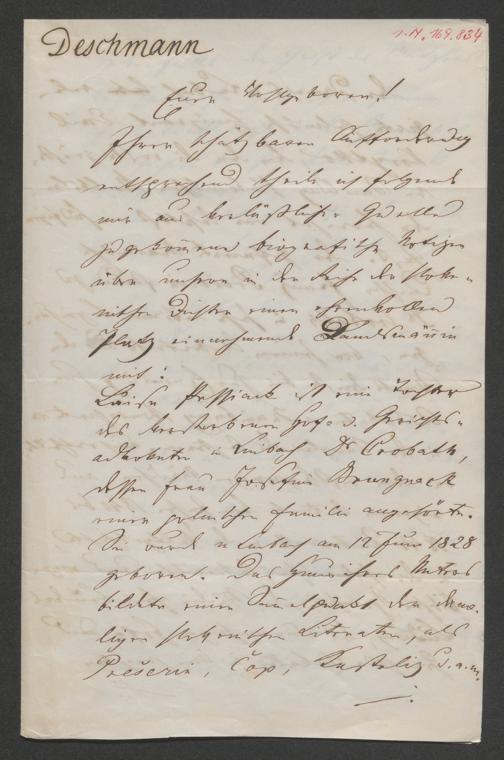 Deschmann
I. N. 169.834
Euer Hochgeboren!
Ihrer schätzbaren Aufforderung
entsprechend theile ich folgende
mir aus verläßlicher Quelle
zugekommene biografische Notizen
über unsere in der Reihe der slove-
nischen Dichter einen ehrenvollen
Platz einnehmende Landsmännin
mit:
Luise Pessiack ist eine Tochter
des verstorbenen Hof u. Gerichts-
advokaten in Laibach Dr Crobath,
dessen Frau Josefine Brungnack
einer polnischen Familie angehörte.
Sie wurde in Laibach am 12 Juni 1828
geboren. Das Haus ihres Vaters
bildete einen Sammelpunkt der dama-
ligen slovenischen Literaten, als
Prešerin, Čop, Kasteliz u. a. m.